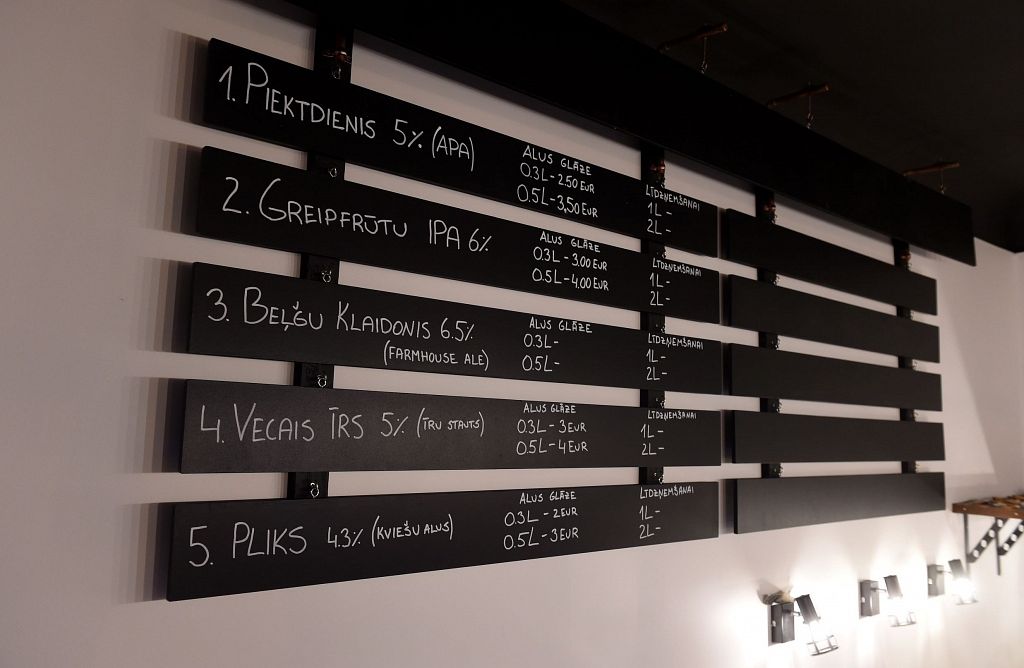 1. PIEKTDIENIS 5% (APA)
ALUS GLĀZE
0.3L - 2.50 EUR
0.5L - 3,50 EUR
LĪDZŅEMŠANAI
1L -
2L -
2. GREIPFRŪTU IPA 6%
ALUS GLĀZE
0.3L - 3.00 EUR
0.5L - 4.00 EUR
LĪDZŅEMŠANAI
1L -
2L -
3. BEĻĢU KLAIDONIS 6.5%
(FARMHOUSE ALE)
ALUS GLĀZE
0.3L -
0.5L -
LĪDZŅEMŠANAI
1L -
2L -
4. VECAIS ĪRS 5% (ĪRU STAUTS)
ALUS GLĀZE
0.3L - 3 EUR
0.5L - 4 EUR
LĪDZŅEMŠANAI
1L -
2L -
5. PLIKS 4.3% (KVIEŠU ALUS)
ALUS GLĀZE
0.3L - 2 EUR
0.5L - 3 EUR
LĪDZŅEMŠANAI
1L -
2L -